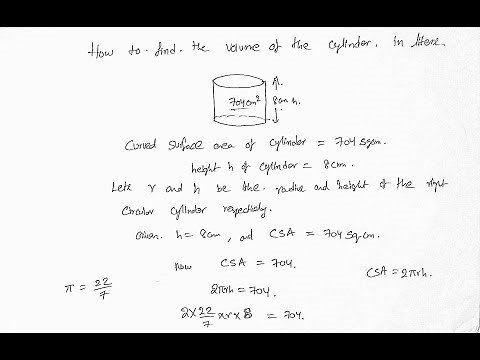 How to find the volume of the cylinder. in liters.
704cm²
8cm h.
Curved surface area of cylinder = 704 sqcm.
height h of cylinder = 8cm.
Lets r and h be the radius and height of the right
circular cylinder respectively.
Given. h = 8cm, and CSA = 704 sq.cm.
Now CSA = 704.
CSA = 2πrh.
π = 22/7
2πrh = 704.
2 × 22/7 × r × 8 = 704.